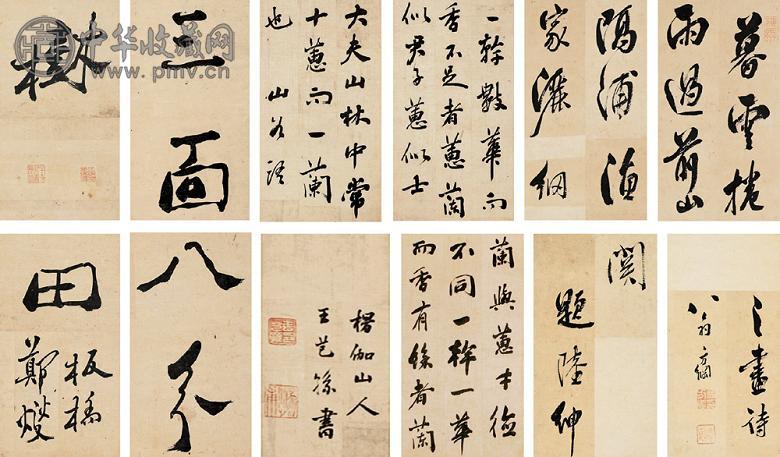 暮雲捲
雨過前山
隔浦漁
家灑網
關
題陸紳
之畫詩
翁方綱
蘭與蕙本德
不同一幹一華
而香有餘者蘭
一幹數華而
香不足者蕙蘭
似君子蕙似士
大夫山林中常
十蕙而一蘭
也 山谷語
楞伽山人
王芑孫書
三面
樹
八分
田
板橋
鄭燮
中华收藏网
www.pmv.cn